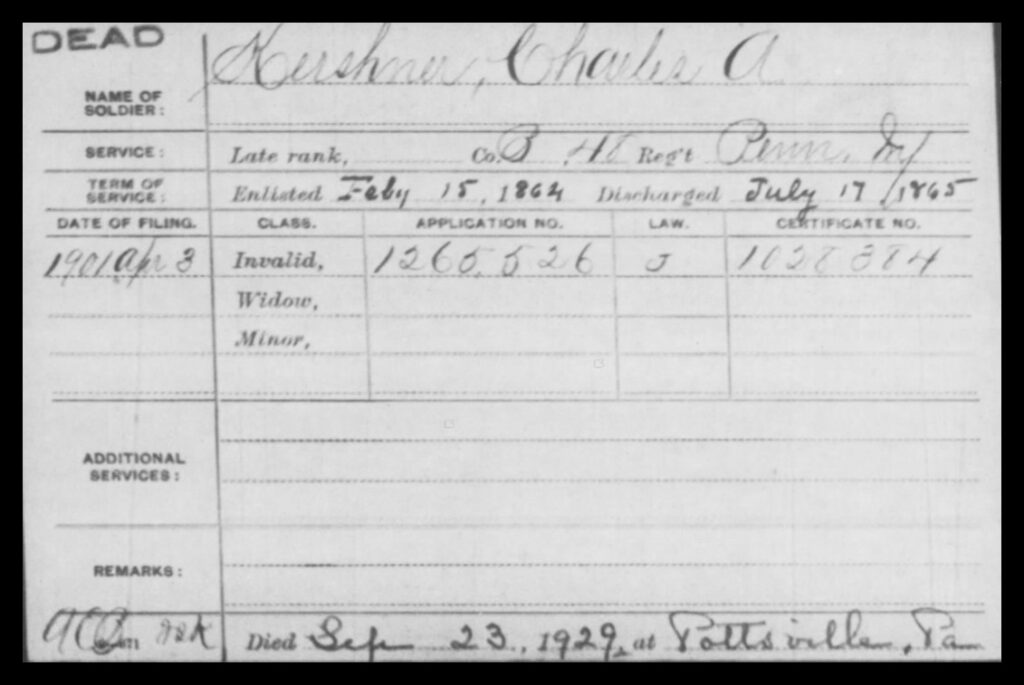 DEAD
Kershner, Charles A
NAME OF
SOLDIER:
SERVICE: Late rank, Co. B 48 Reg't Penn. Inf
TERM OF
SERVICE: Enlisted Feby 15, 1864 Discharged July 17, 1865
DATE OF FILING. CLASS. APPLICATION NO. LAW. CERTIFICATE NO.
1901 Apr 3 Invalid, 1265,526 J 1028384
Widow,
Minor,
ADDITIONAL
SERVICES:
REMARKS:
Died Sep 23, 1929, at Pottsville, Pa